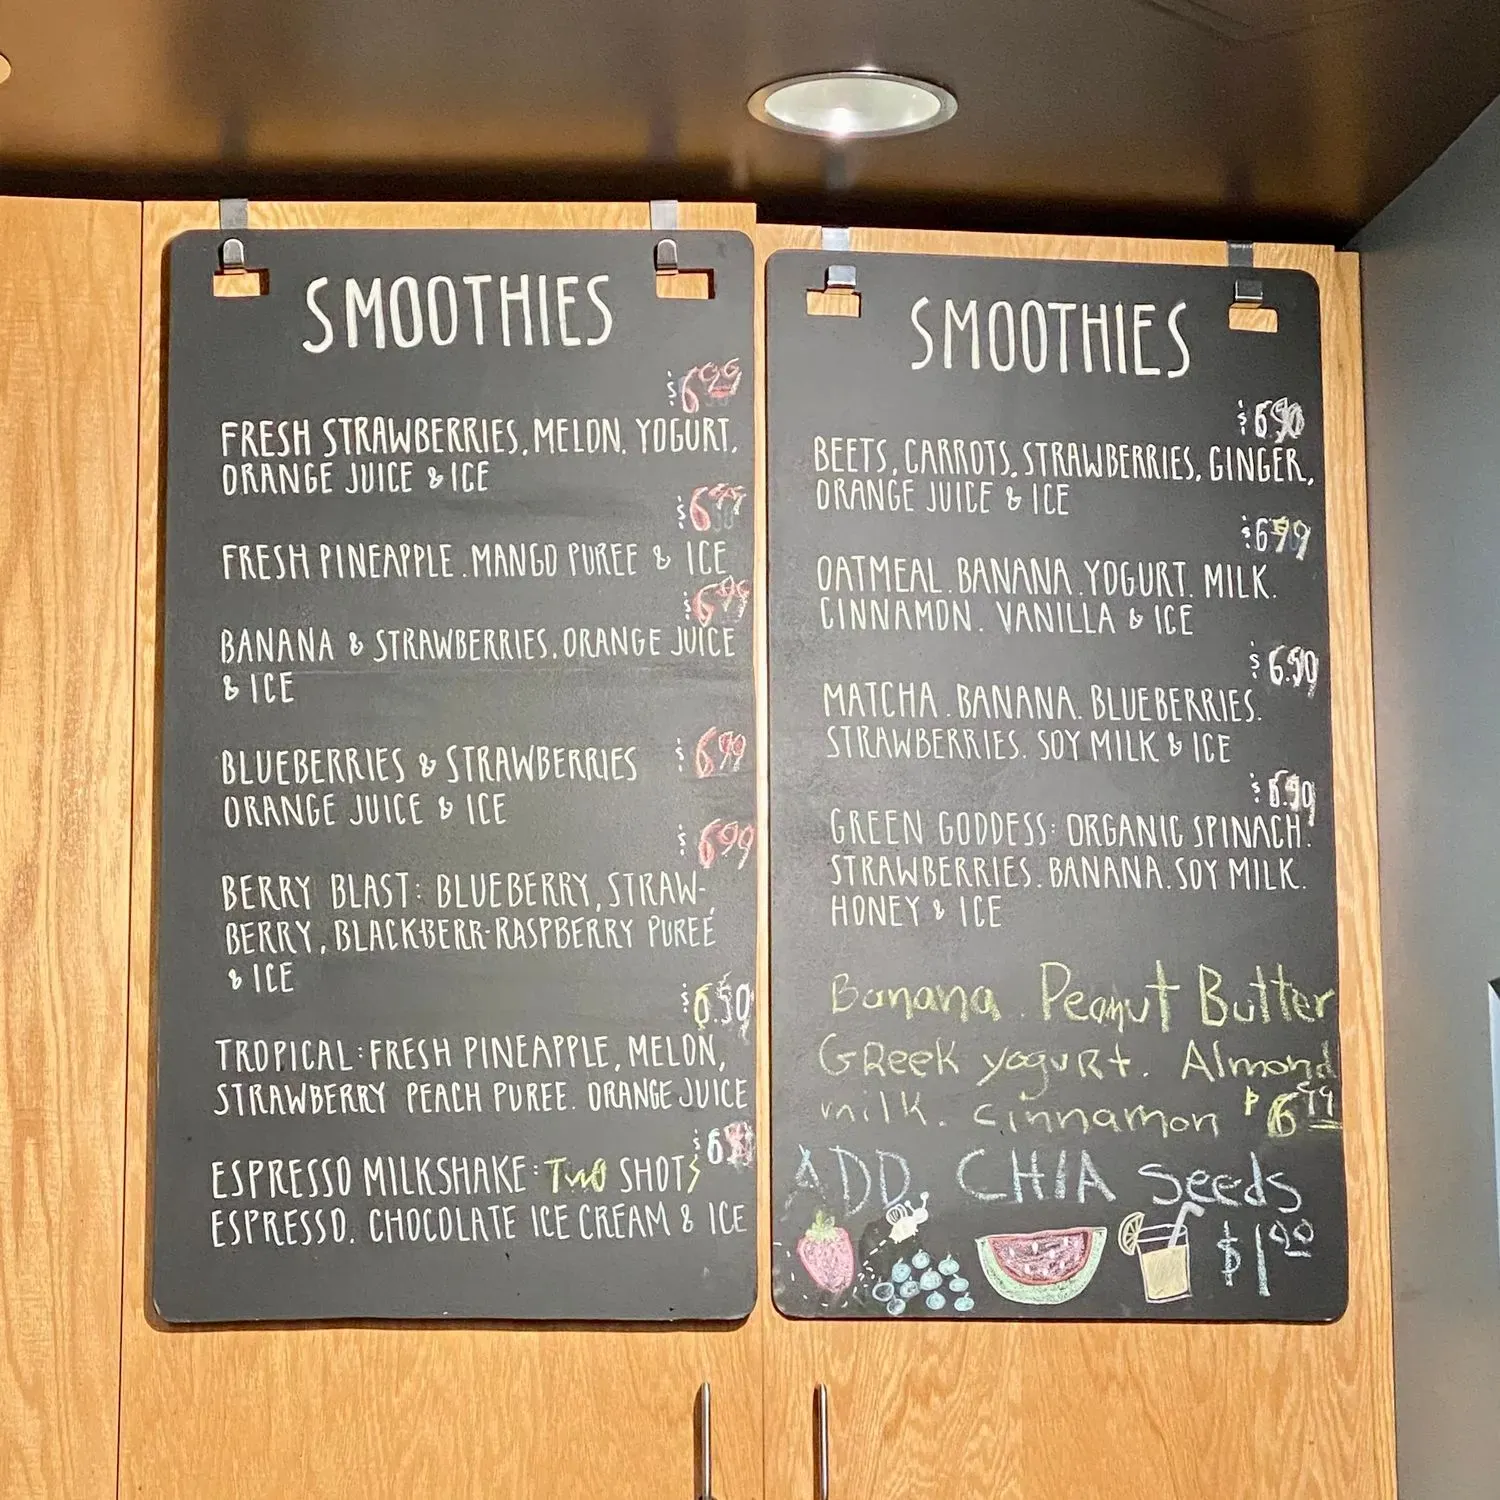 SMOOTHIES
$6.99
FRESH STRAWBERRIES, MELON. YOGURT,
ORANGE JUICE & ICE
$6.99
FRESH PINEAPPLE. MANGO PUREE & ICE
$6.99
BANANA & STRAWBERRIES. ORANGE JUICE
& ICE
BLUEBERRIES & STRAWBERRIES $6.99
ORANGE JUICE & ICE
$6.99
BERRY BLAST: BLUEBERRY, STRAW-
BERRY, BLACKBERR-RASPBERRY PUREE
& ICE
$6.50
TROPICAL: FRESH PINEAPPLE, MELON,
STRAWBERRY PEACH PUREE. ORANGE JUICE
ESPRESSO MILKSHAKE: Two SHOTS
ESPRESSO. CHOCOLATE ICE CREAM & ICE
SMOOTHIES
BEETS, CARROTS, STRAWBERRIES, GINGER,
ORANGE JUICE & ICE
$6.99
OATMEAL. BANANA. YOGURT. MILK.
CINNAMON. VANILLA & ICE
MATCHA. BANANA. BLUEBERRIES.
STRAWBERRIES. SOY MILK & ICE
GREEN GODDESS: ORGANIC SPINACH.
STRAWBERRIES. BANANA. SOY MILK.
HONEY & ICE
Banana. Peanut Butter
GReek yoguRt. Almond
milk. cinnamon $6.99
ADD CHIA Seeds
$1.00